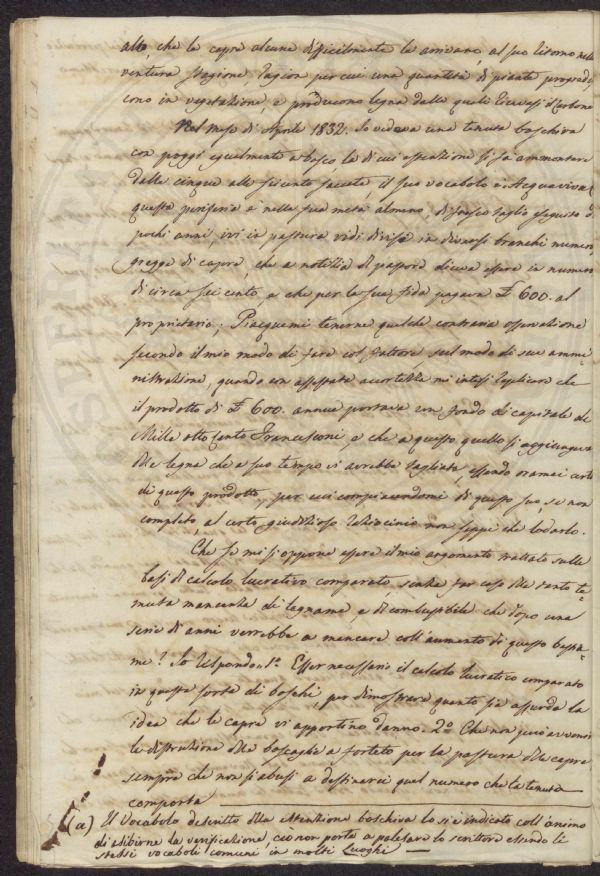 alto, che le capre alcune difficilmente le arrivano, al suo ritorno nella
ventura stagione, ragion per cui una quantità di piante progredi
cono in vegetazione, e producono legna dalle quali ricavasi Carbone
Nel mese di Aprile 1832. Io vedeva una tenuta boschiva
con poggi egualmente a bosco, la di cui estenzione si fa ammontare
dalle cinque alle seicento saccate, il suo vocabolo è Acquaviva (a)
questa periferia è nella sua metà almeno, di fresco taglio eseguito di
pochi anni, ivi in pastura vidi divise in diversi branchi numero
gregge di capre, che a notizia di pastori diceva essere in numero
di circa sei cento, e che per la sua fida pagava £ 600. al
proprietario; Piacquemi tenerne qualche contraria osservazione
secondo il mio modo di fare col fattore sul modo di sue ammi
nistrazione, quando con assestata accortezza mi intesi replicare che
il prodotto di £ 600. annue portava un fondo di capitale di
Mille otto Cento Francesconi, e che a questo quello si aggiungeva
delle legna che a suo tempo vi avrebbe tagliata, essendo oramai certo
di questo prodotto, per cui compiacendomi di questo suo, se non
completo, al certo giudizioso raziocinio non seppi che lodarlo.
Che se mi si oppone essere il mio argomento trattato sulle
basi di calcolo lucrativo comparato, senza far caso della tanto te=
muta mancanza di legname, e di combustibile che dopo una
serie di anni verrebbe a mancare coll'aumento di questo bestia=
me? Io rispondo. 1º Esser necessario il calcolo lucrativo comparato
in questa sorta di boschi, per dimostrare quanto sia assurda la
idea che le capre vi apportino danno. 2º Che non può avvenire
la distruzione della boscaglia a forteto per la pastura delle capre
sempre che non si abusi a destinarci quel numero che la tenuta
comporta
(a) Il Vocabolo descritto della estenzione boschiva lo si è indicato coll'animo
di esibirne la verificazione, ciò non porta a palesare lo scrittore essendo li
stessi vocaboli comuni in molti Luoghi